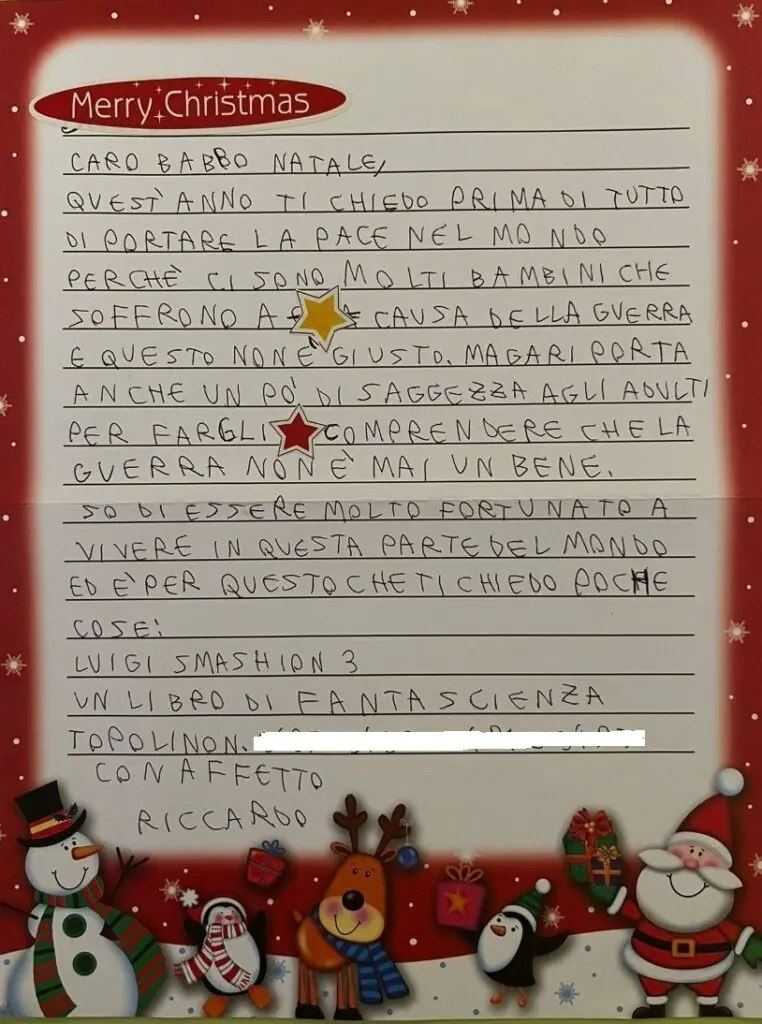 Merry Christmas
CARO BABBO NATALE,
QUEST' ANNO TI CHIEDO PRIMA DI TUTTO
DI PORTARE LA PACE NEL MONDO
PERCHÈ CI SONO MOLTI BAMBINI CHE
SOFFRONO A CAUSA DELLA GUERRA
E QUESTO NON È GIUSTO. MAGARI PORTA
ANCHE UN PO' DI SAGGEZZA AGLI ADULTI
PER FARGLI COMPRENDERE CHE LA
GUERRA NON È MAI UN BENE.
SO DI ESSERE MOLTO FORTUNATO A
VIVERE IN QUESTA PARTE DEL MONDO
ED È PER QUESTO CHE TI CHIEDO POCHE
COSE:
LUIGI SMASHION 3
UN LIBRO DI FANTASCIENZA
TOPOLINO N.
CON AFFETTO
RICCARDO